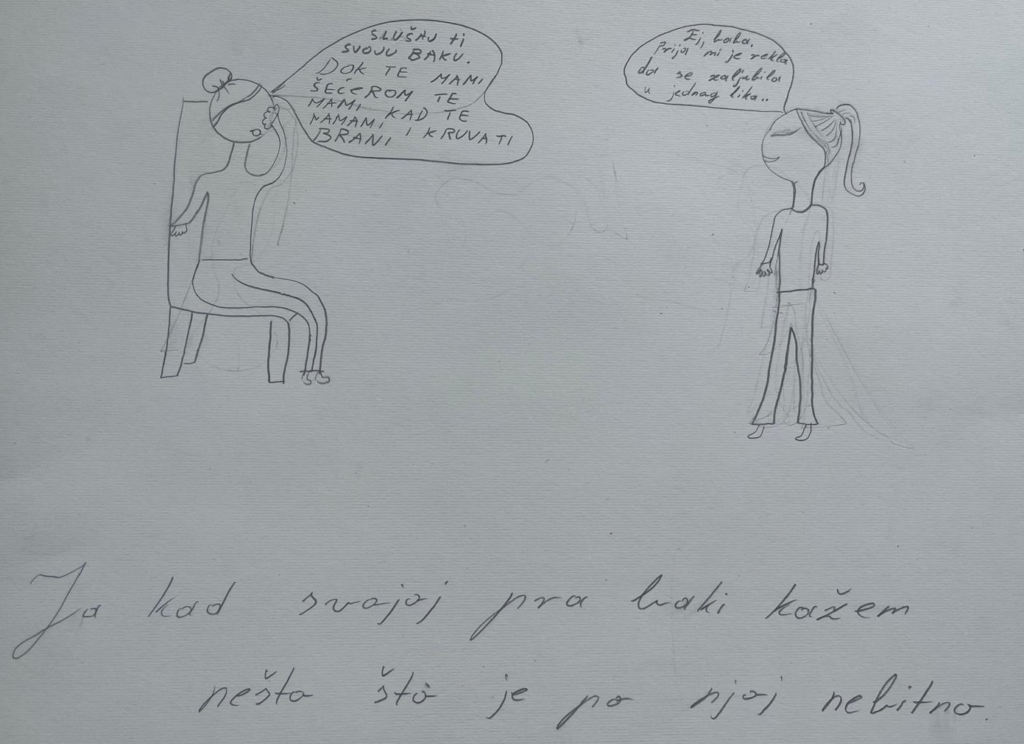 SLUŠAJ TI
SVOJU BAKU.
DOK TE MAMI,
ŠEĆEROM TE
MAMI, KAD TE
NAMAMI,
BRANI I KRUVA TI
Ej, baba.
Prija mi je rekla
da se zaljubila
u jednog lika..
Ja kad svojoj pra baki kažem
nešto što je po njoj nebitno.